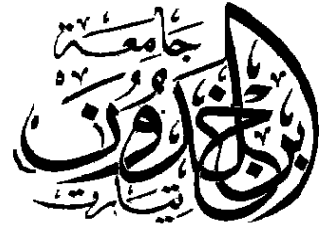 جَامِعَة
ابن خَلدُونَ
تيَارت